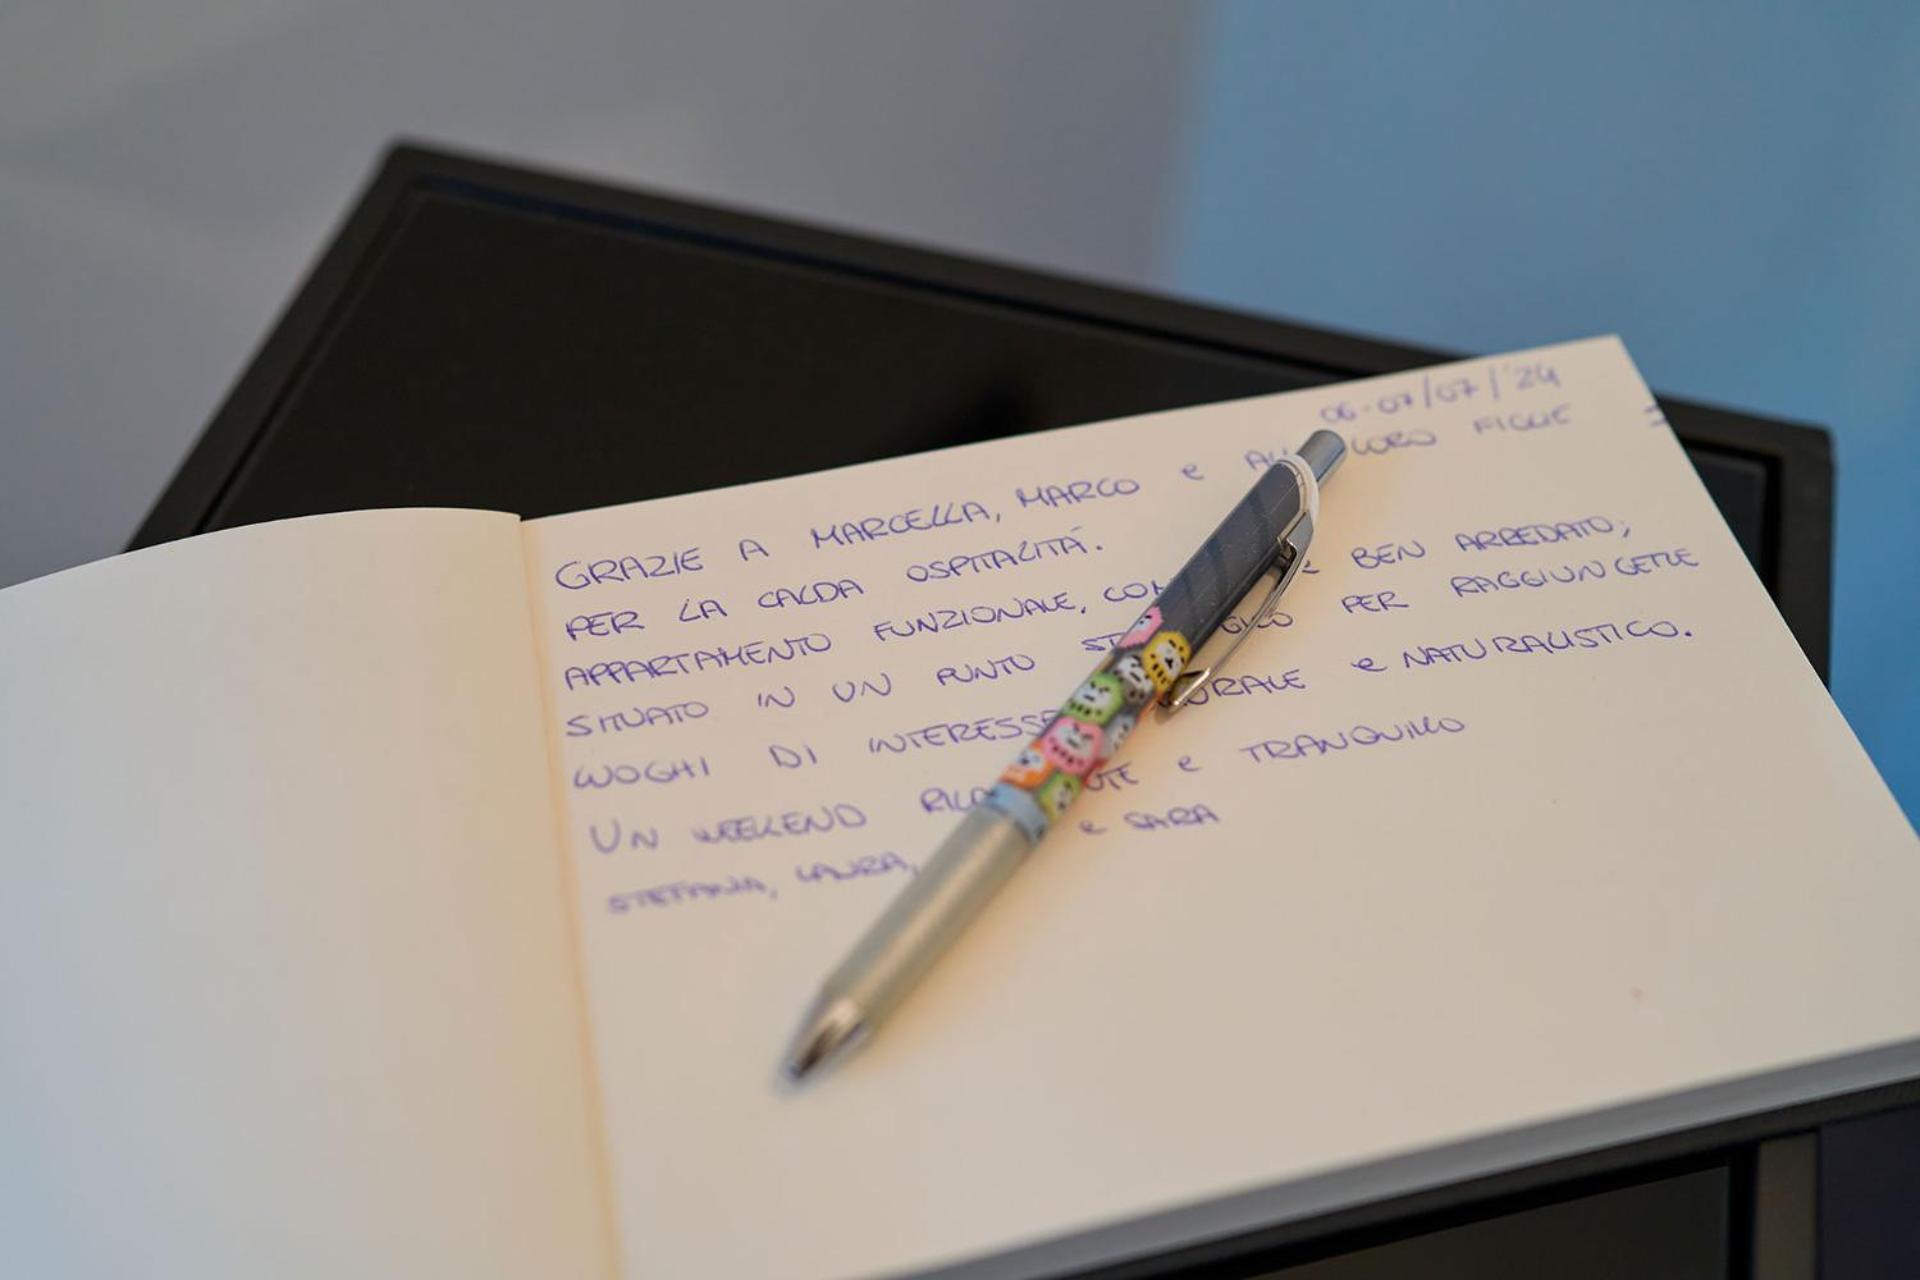 06-07/07/'24
GRAZIE A MARCELLA, MARCO e ALL LORO FIGLIE
PER LA CALDA OSPITALITÁ.
APPARTAMENTO FUNZIONALE, COM e BEN ARREDATO;
SITUATO IN UN PUNTO ST GICO PER RAGGIUNGERE
LUOGHI DI INTERESSE URALE e NATURALISTICO.
UN WEEKEND RILA NTE e TRANQUILLO
STEFANIA, LAURA, e SARA